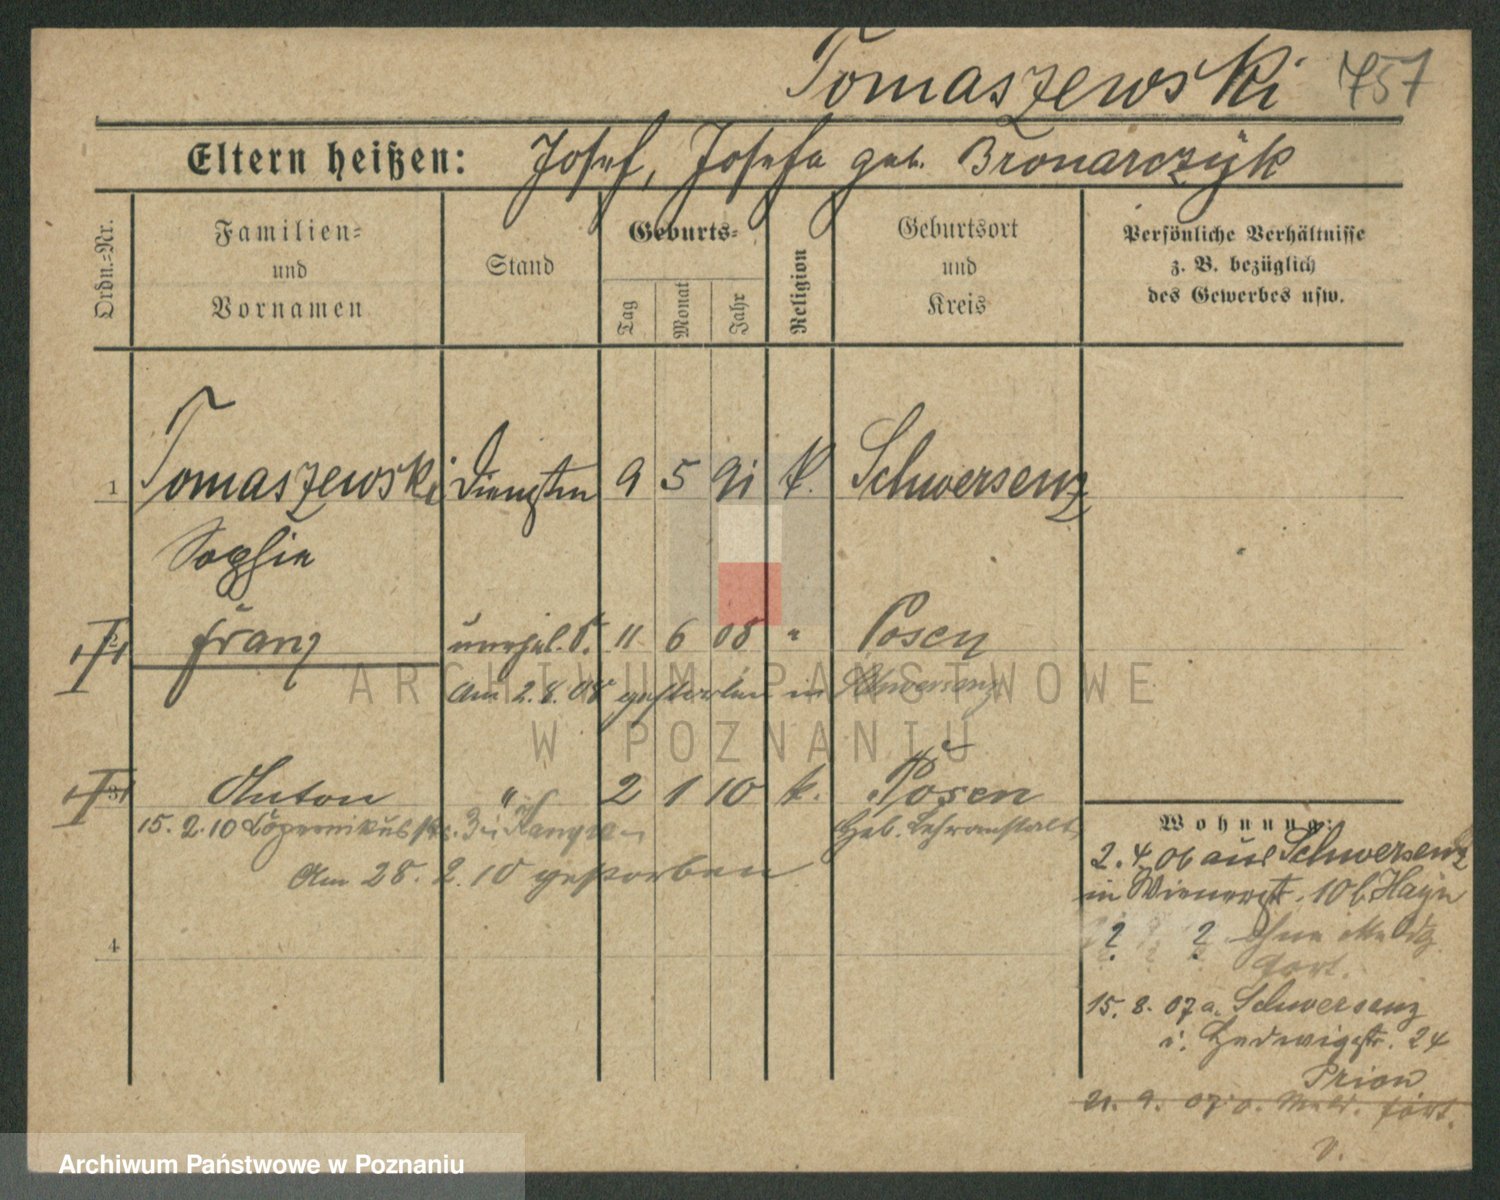 Tomaszewski 757
Eltern heißen: Josef, Josefa geb. Bronarczÿk
Ordn.=Nr.
Familien=
und
Vornamen
Stand
Geburts=
Tag
Monat
Jahr
Religion
Geburtsort
und
Kreis
Persönliche Verhältnisse
z. B. bezüglich
des Gewerbes usw.
1 Tomaszewski 9 5 91 k. Schwersenz
Sophie
2 Franz unehel. S. 11 6 08 " Posen
Am 2.8.08 gestorben in Schwersenz
3 Anton " 2 1 10 k. Posen
15.2.10 Heb. Lehranstalt
Am 28. 2. 10 gestorben
4
Wohnung:
2.4.06 aus Schwersenz
in Wienerstr. 10 b. Hayn
? ? ohne Meldg
fort.
15. 8. 07 a. Schwersenz
i. Hedwigstr. 24
Prion
21. 9. 07 o. Meld. fort.
v.
ARCHIWUM PAŃSTWOWE
W POZNANIU
Archiwum Państwowe w Poznaniu